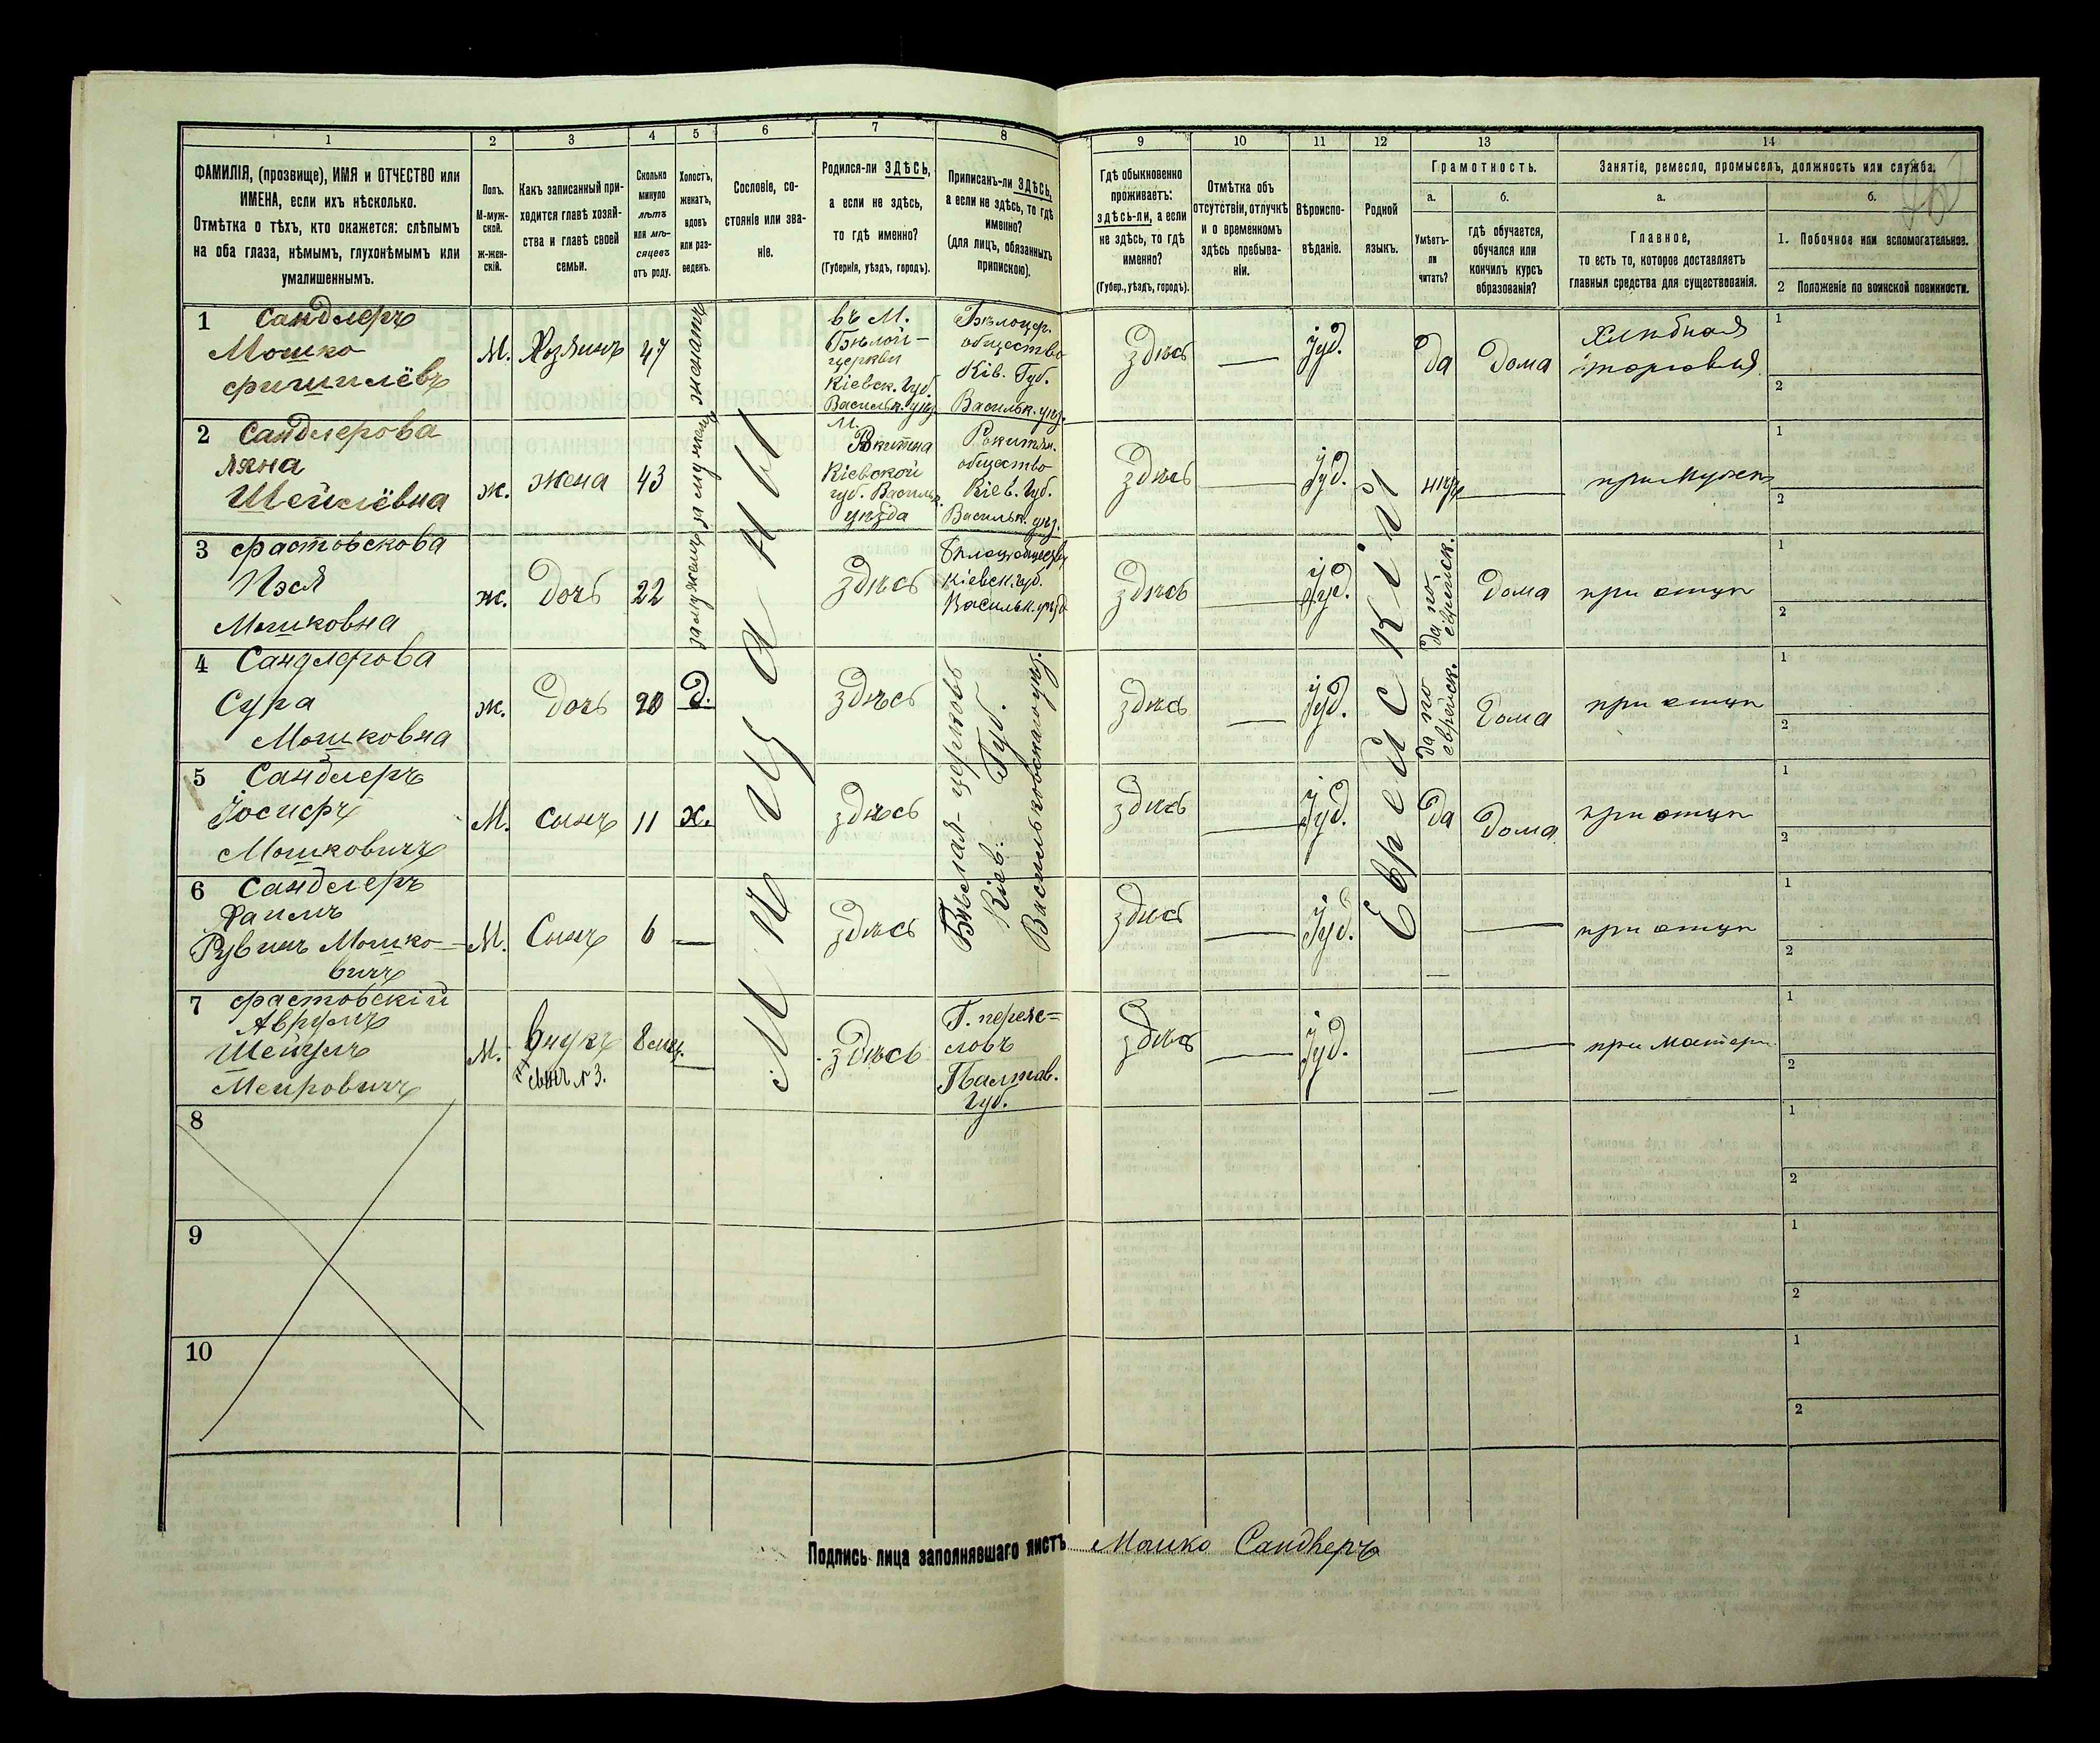 1 2 3 4 5 6 7 8 9 10 11 12 13 14
ФАМИЛІЯ, (прозвище), ИМЯ и ОТЧЕСТВО или
ИМЕНА, если ихъ нѣсколько.
Отмѣтка о тѣхъ, кто окажется: слѣпымъ
на оба глаза, нѣмымъ, глухонѣмымъ или
умалишеннымъ.
Полъ.
М-муж-
ской.
ж-жен-
скій.
Какъ записанный при-
ходится главѣ хозяй-
ства и главѣ своей
семьи.
Сколько
минуло
лѣтъ
или мѣ-
сяцевъ
отъ роду.
Холостъ,
женатъ,
вдовъ
или раз-
веденъ.
Сословіе, со-
стояніе или зва-
ніе.
Родился-ли ЗДѢСЬ,
а если не здѣсь,
то гдѣ именно?
(Губернія, уѣздъ, городъ).
Приписанъ-ли ЗДѢСЬ,
а если не здѣсь, то гдѣ
именно?
(для лицъ, обязанныхъ
припискою).
Гдѣ обыкновенно
проживаетъ:
здѣсь-ли, а если
не здѣсь, то гдѣ
именно?
(Губер., уѣздъ, городъ).
Отмѣтка объ
отсутствіи, отлучкѣ
и о временномъ
здѣсь пребыва-
ніи.
Вѣроиспо-
вѣданіе.
Родной
языкъ.
Грамотность.
а.
Умѣетъ-
ли
читать?
б.
гдѣ обучается,
обучался или
кончилъ курсъ
образованія?
Занятіе, ремесло, промыселъ, должность или служба.
а.
Главное,
то есть то, которое доставляетъ
главныя средства для существованія.
б.
1. Побочное или вспомогательное.
2 Положеніе по воинской повинности.
1 Сандлеръ
Мошко
Фишилёвъ
М.
Хозяинъ
47
женатъ
въ М.
Бѣлой-
церкви
Кіевск. Губ.
Васильк. уѣз.
Бѣлоцер.
общество
Кіев. Губ.
Васильк. уѣз.
здѣсь
Іуд.
да
Дома
Хлѣбная
торговля
1
2
2 Сандлерова
Шейлёвна
ж.
жена
43
замужемъ
М.
Кіевской
губ. Васильк.
уѣзда
Рокитян.
общество
Кіев. Губ.
Васильк. уѣз.
здѣсь
Іуд.
нѣтъ
при мужѣ
1
2
3 Фастовскова
Пэся
Мошковна
ж.
Дочь
22
замужемъ
здѣсь
Кіевск. губ.
Васильк. уѣзд
здѣсь
Іуд.
да по
еврейск.
Дома
при отцѣ
1
2
4 Сандлерова
Сура
Мошковна
ж.
Дочь
20
Д.
здѣсь
здѣсь
Іуд.
да по
еврейск.
Дома
при отцѣ
1
2
5 Сандлеръ
Іосифъ
Мошковичъ
М.
Сынъ
11
х.
здѣсь
Бѣлая-церковь
Кіев. Губ.
Васильковскаго уѣз.
здѣсь
Іуд.
да
Дома
при отцѣ
1
2
6 Сандлеръ
Рувинъ Мошко-
вичъ
М.
Сынъ
6
здѣсь
здѣсь
Іуд.
при отцѣ
1
2
7 Фастовскій
Аврумъ
Меировичъ
М.
Внукъ
сынъ № 3.
8 мѣс.
здѣсь
Г. переяс=
ловъ
Палтав.
Губ.
здѣсь
Іуд.
при матери
1
2
Мѣщане
Еврейскій
8
1
2
9
1
2
10
1
2
Подпись лица заполнявшаго листъ Мошко Сандлеръ